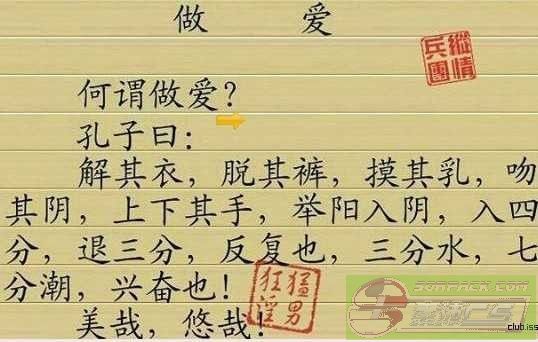 做 爱
縱情
兵團
何谓做爱？
孔子曰：
解其衣，脱其裤，摸其乳，吻
其阴，上下其手，举阳入阴，入四
分，退三分，反复也，三分水，七
分潮，兴奋也！
美哉，悠哉！
猛男
狂淫
SURPACK.COM
club.iss